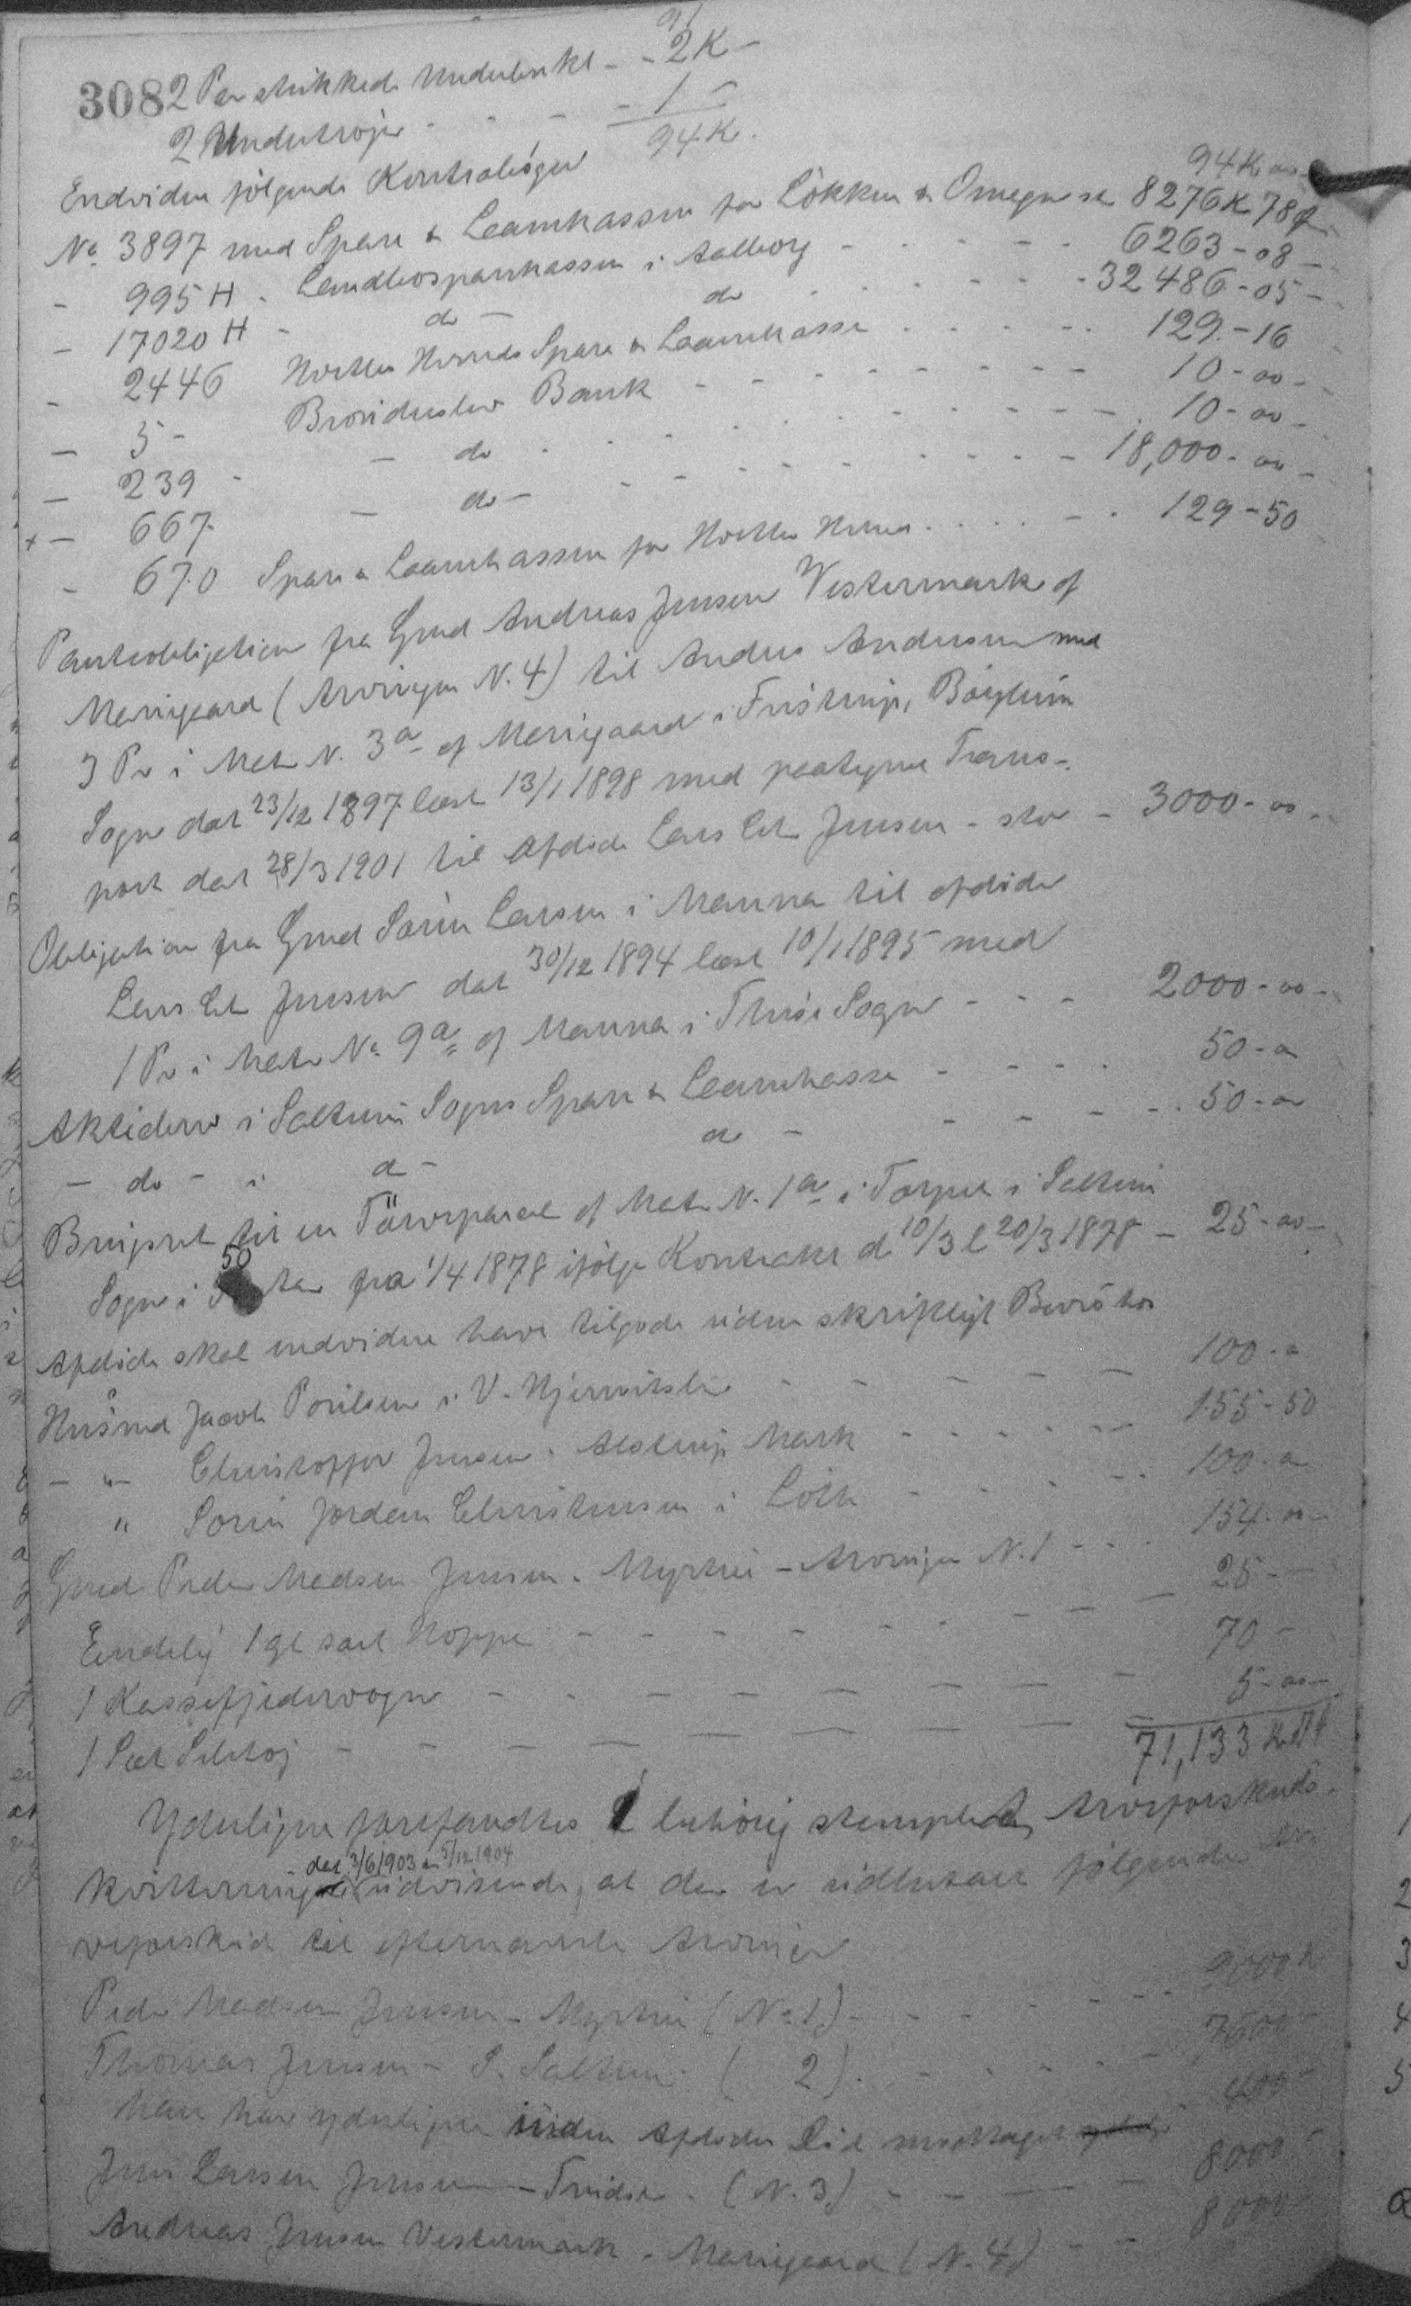 91
308 2 Par strikkede Underbenkl - - 2 K -
2 Undertrøjer - - - - 1 -
94 K.
Endvidere følgende Kontrabøger 94 K 00
No 3897 med Spare & Laanekassen for Løkken & Omegn st 8276 K 78 Ø
- 995 H - Landbosparekassen i Aalborg - - - - - 6263 - 08 -
- 17020 H - do - do - - - - - 32486 - 05 -
- 2446 Horsens Herreds Spare & Laanekasse - - - - 129 - 16
- 5 - Brønderslev Bank - - - - - - - - 10 - 00 -
- 239 - - do - - - - - - - - 10 - 00 -
+ - 667 - do - - - - - - - - 18,000 - 00 -
- 670 Spare & Laanekassen for - - - - - 129 - 50
Panteobligation fra Gmd Andreas Jensen Vestermark af
Meriigaard (Arvingen N. 4) til Anders Andersen med
3 Pr i Matr N. 3a af Meriigaard i Fristrup, Bøiglum
Sogn dat 23/12 1897 læst 13/1 1898 med paategnet Trans-
port dat 28/3 1901 til Afdøde Lars Chr Jensen - stor - 3000 - 00 -
Obligation fra Gmd Søren Larsen i Manna til afdøde
Lars Chr Jensen dat 30/12 1894 læst 10/1 1895 med
1 Pr i Matr No 9a af Manna i Thise Sogn - - - 2000 - 00 -
Aktiebrev i Saltum Sogns Spare & Laanekasse - - - - 50 - 00
- do - i do - do - - - - - 50 - 00
Brugsret til en Tørveparcel af Matr N. 1a i Torpet i Saltum
Sogn i 50 Aar fra 1/4 1878 ifølge Kontrakt d 10/3 l 20/3 1878 - 25 - 00 -
Afdøde skal endvidere have tilgode uden skriftligt Bevis hos
Husmd Jacob Poulsen i V. Hjermitslev - - - - - 100 - 00
- " - Christoffer Jensen i Alstrup Mark - - - - - - 155 - 50
" Søren Jordan Christensen i Løth - - - - - 100 - 00
Gmd Peder Madsen Jensen - Myrtue - Arvingen N. 1 - - - 154 - 00 -
Endelig 1 gl sort Hoppe - - - - - - - - - - 25 - -
1 Kassefjedervogn - - - - - - - - 70 -
1 Sæt Seletøj - - - - - - - - 5 - 00 -
71,133 K
Yderligere forefandtes 2 behørig stemplede Arveforskuds-
kvitteringer dat 3/6 1903 & 5/12 1904 udvisende, at der er udbetalt følgende Ar-
veforskud til efternævnte Arvinger
Peder Madsen Jensen - Myrtue (No 1) - - - - - - 9000 K
Thomas Jensen - S. Saltum (2) - - - - - 7600 -
han har yderligere inden Afdødes Død modtaget 400 -
Jens Larsen Jensen - (N. 3) - - - - 8000 -
Andreas Jensen Vestermark - Meriigaard (N. 4) - - 8000